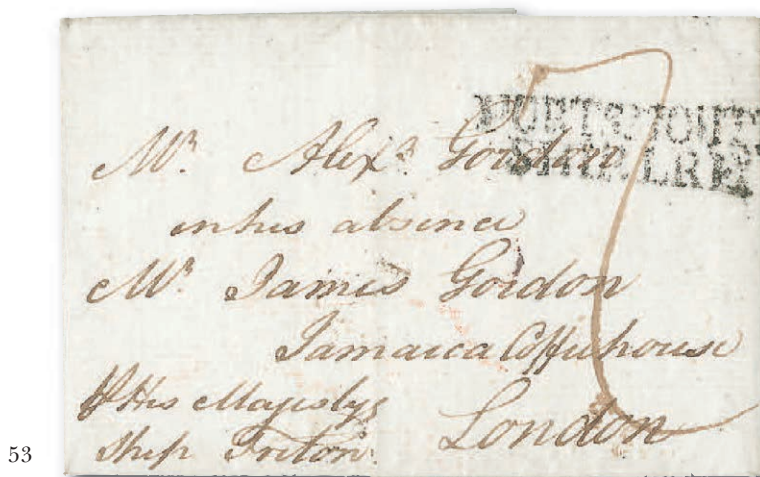 PORTSMOUTH
SHIP LRE
7
Mr. Alexr. Gordon
in his absence
Mr. James Gordon
Jamaica Coffeehouse
P His Majestys
Ship Triton.
London
53